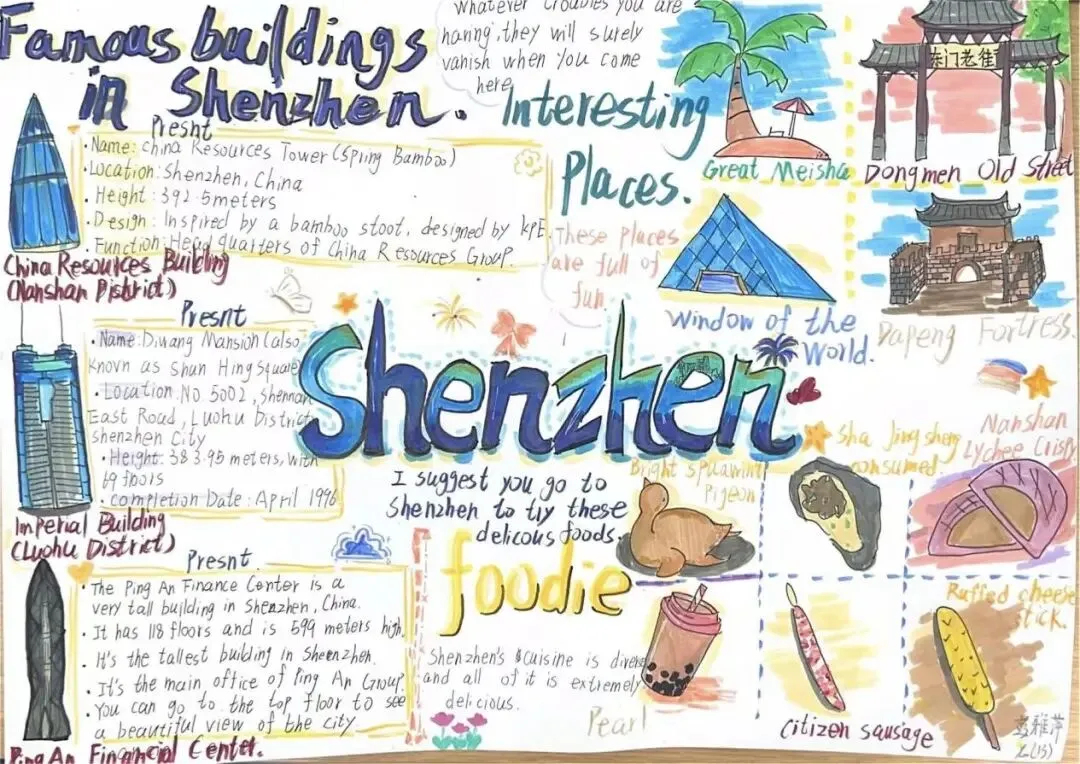 Famous buildings
in Shenzhen.
Presnt
· Name: China Resources Tower (Spring Bamboo)
· Location: Shenzhen, China
· Height: 392.5 meters
· Design: Inspired by a bamboo stoot, designed by KPE.
· Function: Head quarters of China Resources Group.
China Resources Building
(Nanshan District)
Presnt
· Name: Diwang Mansion (also
known as Shun Hing Square
· Location: No. 5002, Shennan
East Road, Luohu District
Shenzhen City
· Height: 383.95 meters, with
69 floors
· completion Date: April 1996
Imperial Building
(Luohu District)
Presnt
· The Ping An Finance Center is a
very tall building in Shenzhen, China.
· It has 118 floors and is 599 meters high.
· It's the tallest building in Shenzhen.
· It's the main office of Ping An Group.
· You can go to the top floor to see
a beautiful view of the city
Ping An Financial Center.
whatever troubles you are
having, they will surely
vanish when you come
here
Interesting
Places.
These places
are full of
fun
Great Meisha
东门老街
Dongmen Old Street
Window of the
World.
Dapeng Fortress.
Shenzhen
I suggest you go to
Shenzhen to try these
delicous foods.
foodie
Shenzhen's cuisine is diverse
and all of it is extremely
delicious.
Bright
Pigeon
Sha Jing sheng
consumed.
Nanshan
Lychee Crispy
Pearl
Citizen sausage
Ruffed cheese
stick.
雅萍